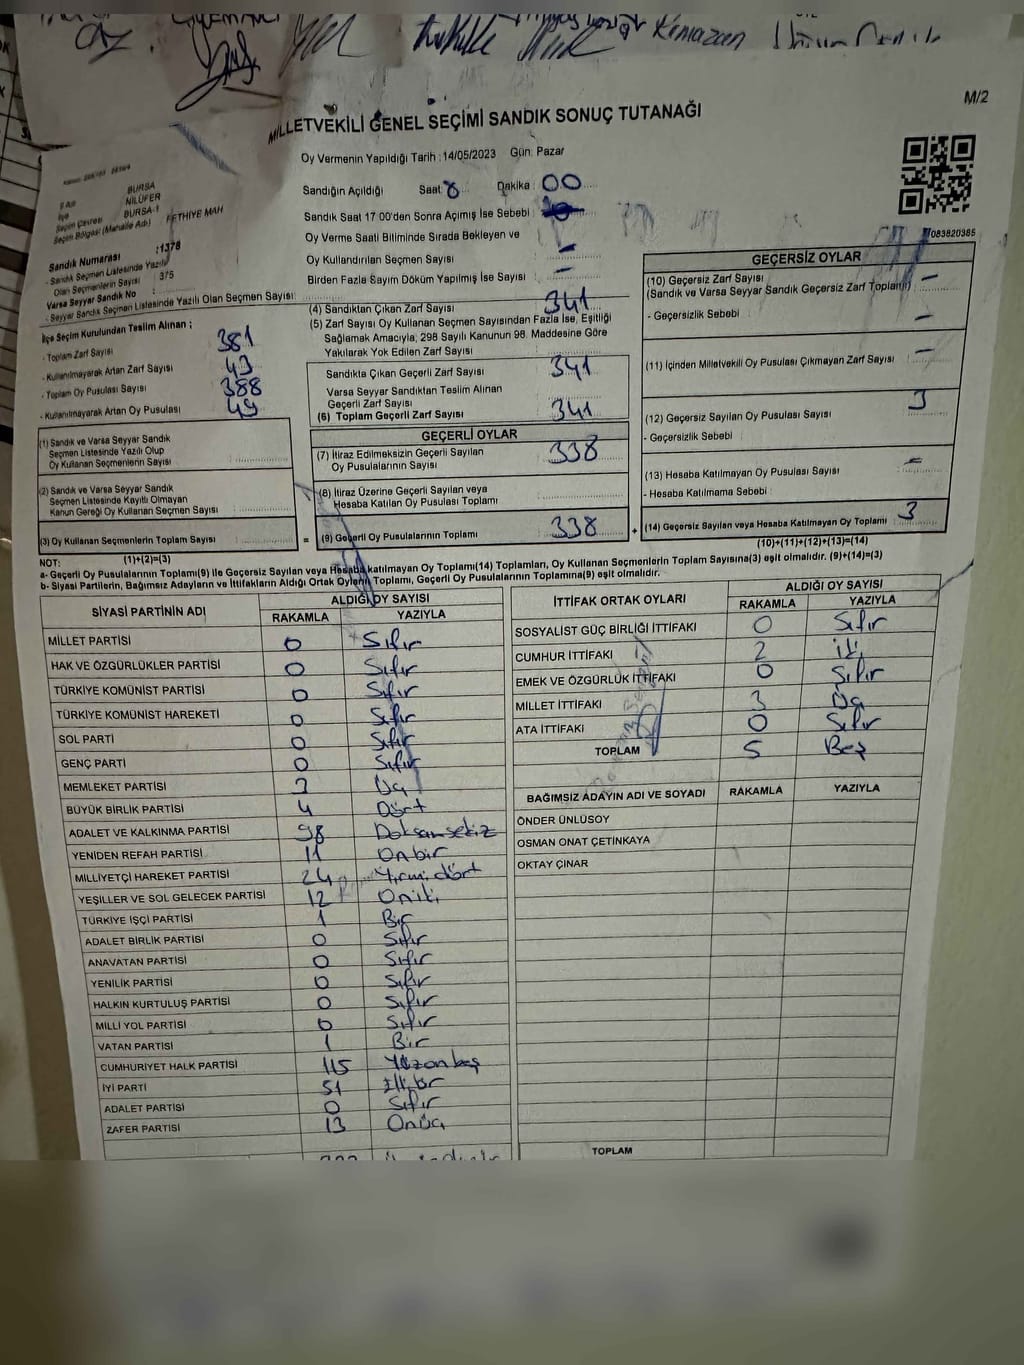 M/2
MİLLETVEKİLİ GENEL SEÇİMİ SANDIK SONUÇ TUTANAĞI
Oy Vermenin Yapıldığı Tarih : 14/05/2023 Gün: Pazar
BURSA
İlçe NİLÜFER
Seçim Çevresi BURSA-1
Seçim Bölgesi (Mahalle Adı) FETHİYE MAH
Sandık Numarası :1378
- Sandık Seçmen Listesinde Yazılı
Olan Seçmenlerin Sayısı : 375
Varsa Seyyar Sandık No :
- Seyyar Sandık Seçmen Listesinde Yazılı Olan Seçmen Sayısı:
Sandığın Açıldığı Saat 8 Dakika : 00
Sandık Saat 17 00'den Sonra Açımış İse Sebebi :
Oy Verme Saati Bitiminde Sırada Bekleyen ve
Oy Kullandırılan Seçmen Sayısı : -
Birden Fazla Sayım Döküm Yapılmış İse Sayısı : -
083820385
İlçe Seçim Kurulundan Teslim Alınan ;
- Toplam Zarf Sayısı 381
- Kullanılmayarak Artan Zarf Sayısı 43
- Toplam Oy Pusulası Sayısı 388
- Kullanılmayarak Artan Oy Pusulası 49
(1) Sandık ve Varsa Seyyar Sandık
Seçmen Listesinde Yazılı Olup
Oy Kullanan Seçmenlerin Sayısı :
(2) Sandık ve Varsa Seyyar Sandık
Seçmen Listesinde Kayıtlı Olmayan
Kanun Gereği Oy Kullanan Seçmen Sayısı :
(3) Oy Kullanan Seçmenlerin Toplam Sayısı :
(1)+(2)=(3)
(4) Sandıktan Çıkan Zarf Sayısı 341
(5) Zarf Sayısı Oy Kullanan Seçmen Sayısından Fazla İse, Eşitliği
Sağlamak Amacıyla; 298 Sayılı Kanunun 98. Maddesine Göre
Yakılarak Yok Edilen Zarf Sayısı
Sandıkta Çıkan Geçerli Zarf Sayısı 341
Varsa Seyyar Sandıktan Teslim Alınan
Geçerli Zarf Sayısı :
(6) Toplam Geçerli Zarf Sayısı 341
GEÇERLİ OYLAR
(7) İtiraz Edilmeksizin Geçerli Sayılan
Oy Pusulalarının Sayısı : 338
(8) İtiraz Üzerine Geçerli Sayılan veya
Hesaba Katılan Oy Pusulası Toplamı
= (9) Geçerli Oy Pusulalarının Toplamı 338 +
GEÇERSİZ OYLAR
(10) Geçersiz Zarf Sayısı : -
(Sandık ve Varsa Seyyar Sandık Geçersiz Zarf Toplamı)
- Geçersizlik Sebebi : -
(11) İçinden Milletvekili Oy Pusulası Çıkmayan Zarf Sayısı : -
(12) Geçersiz Sayılan Oy Pusulası Sayısı : 3
- Geçersizlik Sebebi :
(13) Hesaba Katılmayan Oy Pusulası Sayısı : -
- Hesaba Katılmama Sebebi :
(14) Geçersiz Sayılan veya Hesaba Katılmayan Oy Toplamı : 3
(10)+(11)+(12)+(13)=(14)
NOT:
a- Geçerli Oy Pusulalarının Toplamı(9) ile Geçersiz Sayılan veya Hesaba katılmayan Oy Toplamı(14) Toplamları, Oy Kullanan Seçmenlerin Toplam Sayısına(3) eşit olmalıdır. (9)+(14)=(3)
b- Siyasi Partilerin, Bağımsız Adayların ve İttifakların Aldığı Ortak Oyların Toplamı, Geçerli Oy Pusulalarının Toplamına(9) eşit olmalıdır.
SİYASİ PARTİNİN ADI ALDIĞI OY SAYISI
RAKAMLA YAZIYLA
MİLLET PARTİSİ 0 Sıfır
HAK VE ÖZGÜRLÜKLER PARTİSİ 0 Sıfır
TÜRKİYE KOMÜNİST PARTİSİ 0 Sıfır
TÜRKİYE KOMÜNİST HAREKETİ 0 Sıfır
SOL PARTİ 0 Sıfır
GENÇ PARTİ 0 Sıfır
MEMLEKET PARTİSİ 3 Üç
BÜYÜK BİRLİK PARTİSİ 4 Dört
ADALET VE KALKINMA PARTİSİ 98 Doksansekiz
YENİDEN REFAH PARTİSİ 11 Onbir
MİLLİYETÇİ HAREKET PARTİSİ 24 Yirmidört
YEŞİLLER VE SOL GELECEK PARTİSİ 12 Oniki
TÜRKİYE İŞÇİ PARTİSİ 1 Bir
ADALET BİRLİK PARTİSİ 0 Sıfır
ANAVATAN PARTİSİ 0 Sıfır
YENİLİK PARTİSİ 0 Sıfır
HALKIN KURTULUŞ PARTİSİ 0 Sıfır
MİLLİ YOL PARTİSİ 0 Sıfır
VATAN PARTİSİ 1 Bir
CUMHURİYET HALK PARTİSİ 115 Yüzonbeş
İYİ PARTİ 51 Ellibir
ADALET PARTİSİ 0 Sıfır
ZAFER PARTİSİ 13 Onüç
İTTİFAK ORTAK OYLARI ALDIĞI OY SAYISI
RAKAMLA YAZIYLA
SOSYALİST GÜÇ BİRLİĞİ İTTİFAKI 0 Sıfır
CUMHUR İTTİFAKI 2 iki
EMEK VE ÖZGÜRLÜK İTTİFAKI 0 Sıfır
MİLLET İTTİFAKI 3 Üç
ATA İTTİFAKI 0 Sıfır
TOPLAM 5 Beş
BAĞIMSIZ ADAYIN ADI VE SOYADI RAKAMLA YAZIYLA
ÖNDER ÜNLÜSOY
OSMAN ONAT ÇETİNKAYA
OKTAY ÇINAR
TOPLAM